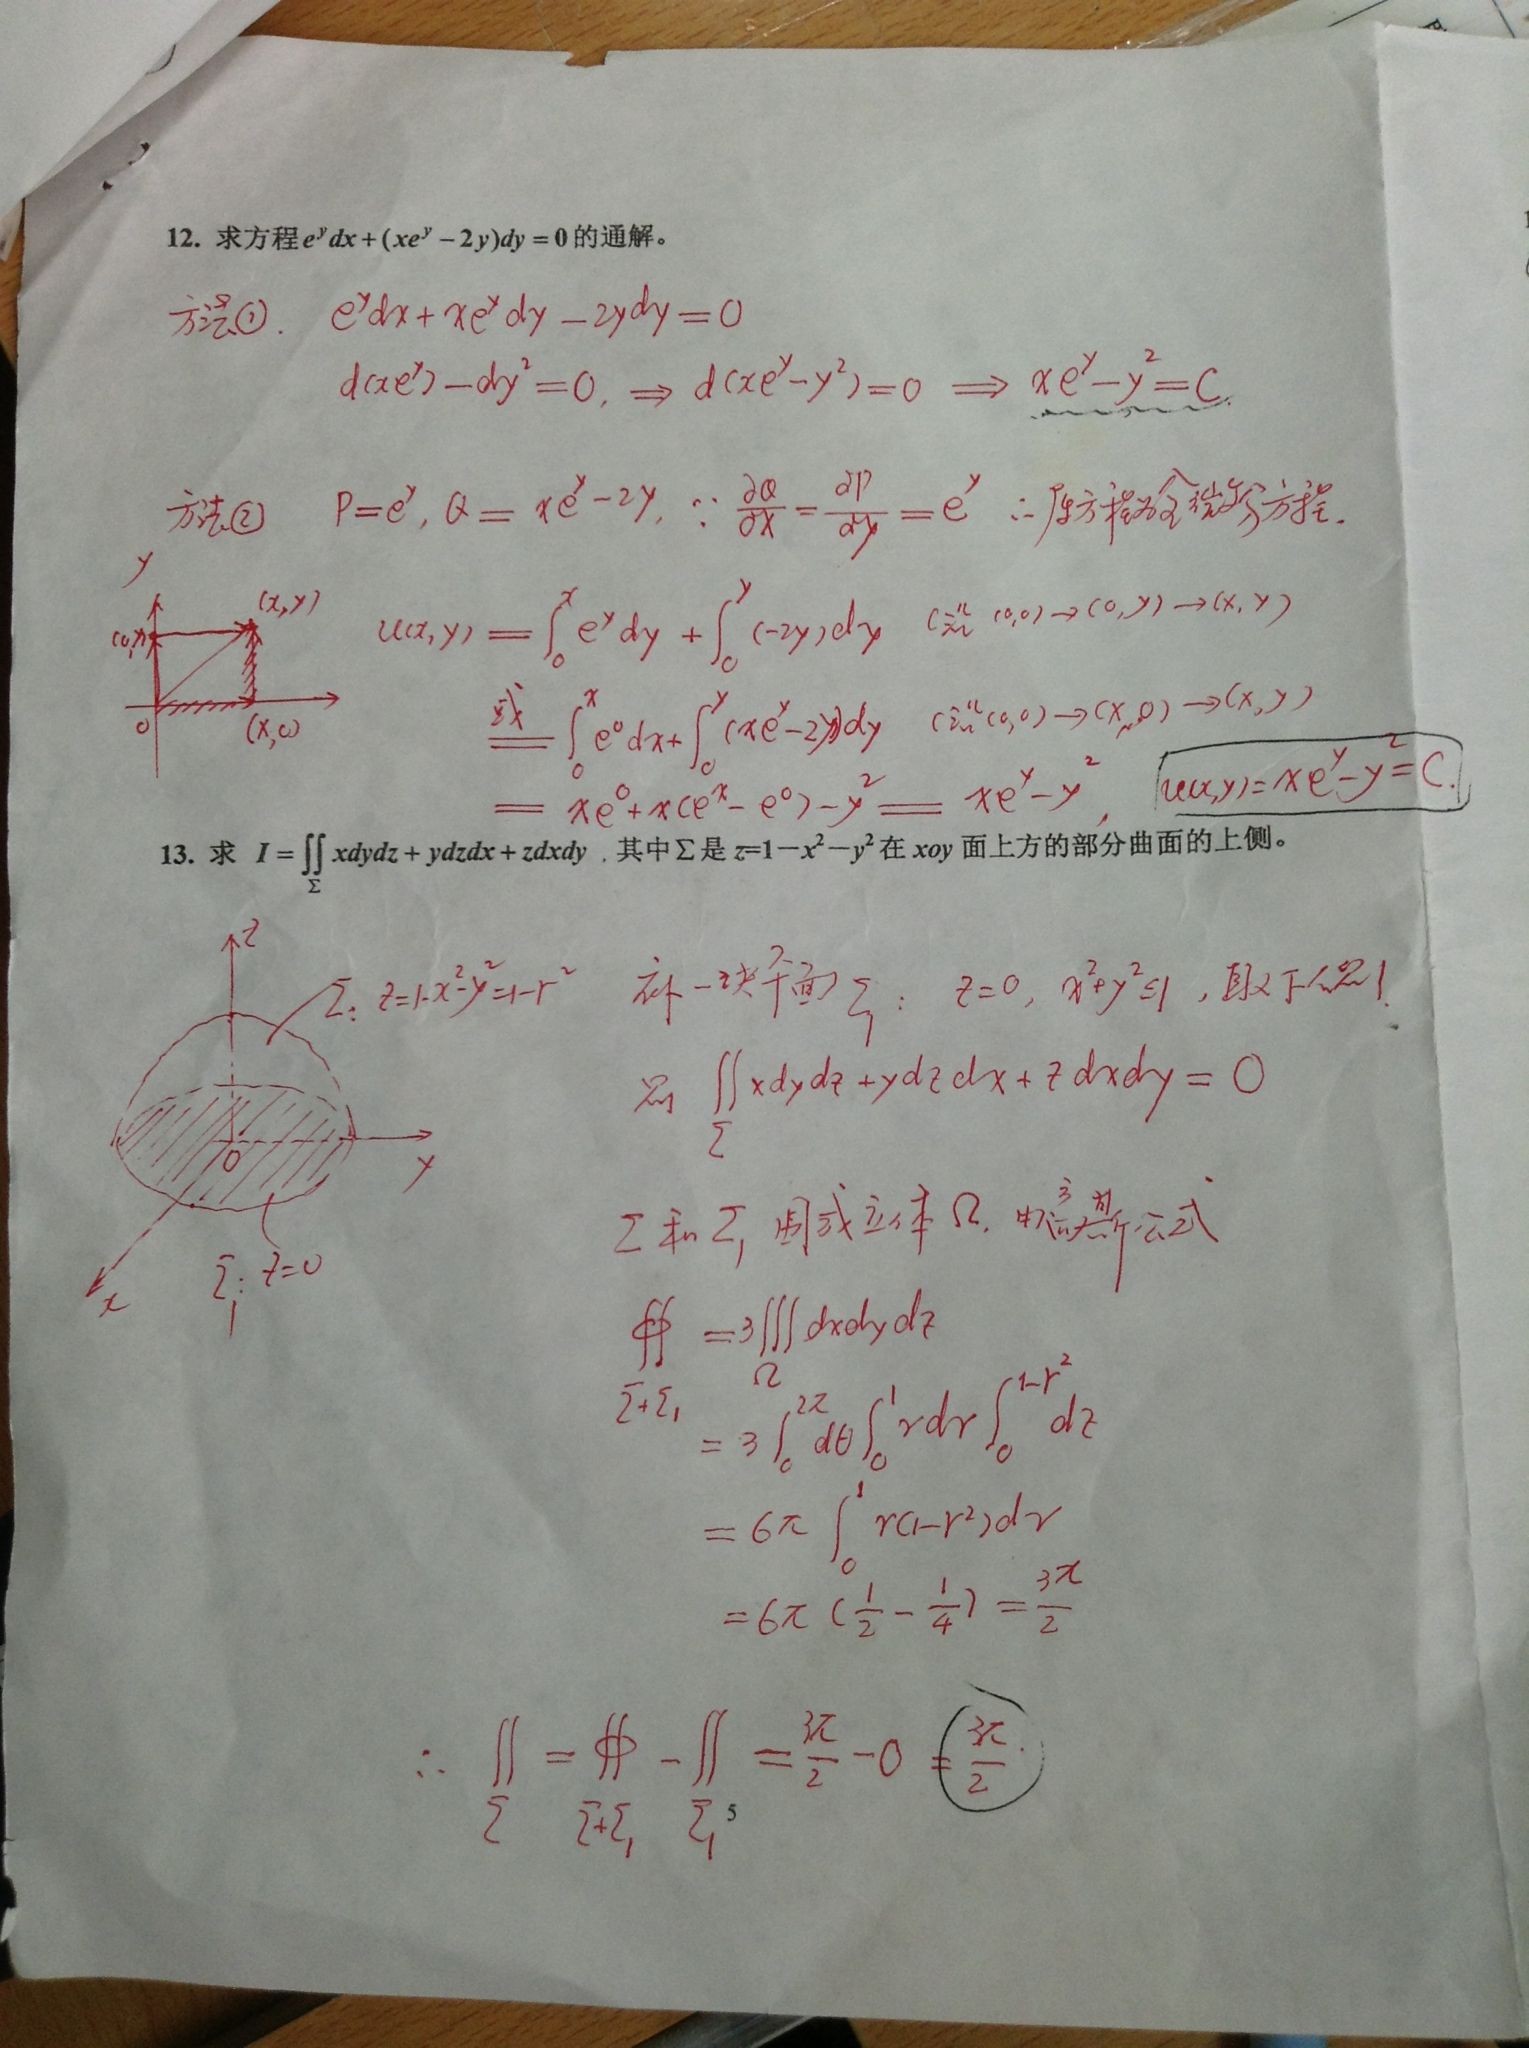 12. 求方程 e^y dx + (xe^y − 2y)dy = 0 的通解。
方法①. e^y dx + xe^y dy − 2ydy = 0
d(xe^y) − dy² = 0, ⇒ d(xe^y − y²) = 0 ⇒ xe^y − y² = C.
方法② P = e^y, Q = xe^y − 2y, ∵ ∂Q/∂x = ∂P/∂y = e^y ∴ 原方程为全微分方程.
y
(x,y)
(0,y)
0
(x,0)
u(x,y) = ∫₀^x e^y dy + ∫₀^y (−2y)dy (沿 (0,0)→(0,y)→(x,y)
或= ∫₀^x e⁰dx + ∫₀^y (xe^y − 2y)dy (沿(0,0)→(x,0)→(x,y)
= xe⁰ + x(e^x − e⁰) − y² = xe^y − y², u(x,y) = xe^y − y² = C.
13. 求 I = ∬_Σ xdydz + ydzdx + zdxdy , 其中Σ是 z=1−x²−y² 在 xoy 面上方的部分曲面的上侧。
z
Σ: z=1-x²-y²=1-r²
0
y
x
Σ₁: z=0
补一块平面Σ₁: z=0, x²+y²≤1, 取下侧!
则 ∬_Σ xdydz + ydzdx + zdxdy = 0
Σ和Σ₁围成立体Ω. 由高斯公式
∯_{Σ+Σ₁} = 3∭_Ω dxdydz
= 3∫₀^{2π} dθ ∫₀^1 rdr ∫₀^{1−r²} dz
= 6π ∫₀^1 r(1−r²)dr
= 6π (1/2 − 1/4) = 3π/2
∴ ∬_Σ = ∯_{Σ+Σ₁} − ∬_{Σ₁} = 3π/2 − 0 = 3π/2.
5